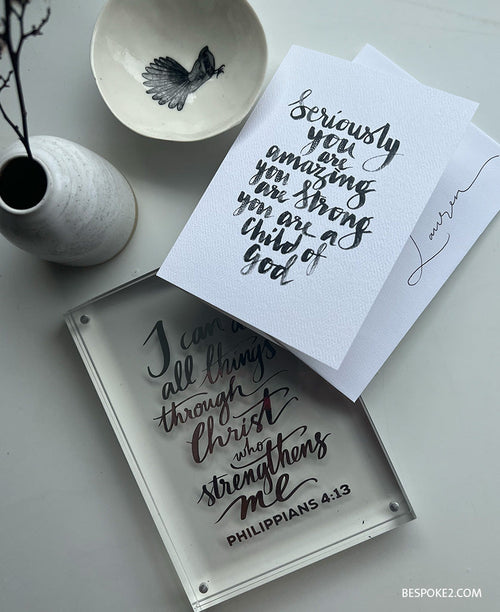 Seriously
you are
amazing
you
are Strong
you are a
Child of
God
Lauren
I can
all things
through
Christ
who
strengthens
me
PHILIPPIANS 4:13
BESPOKE2.COM